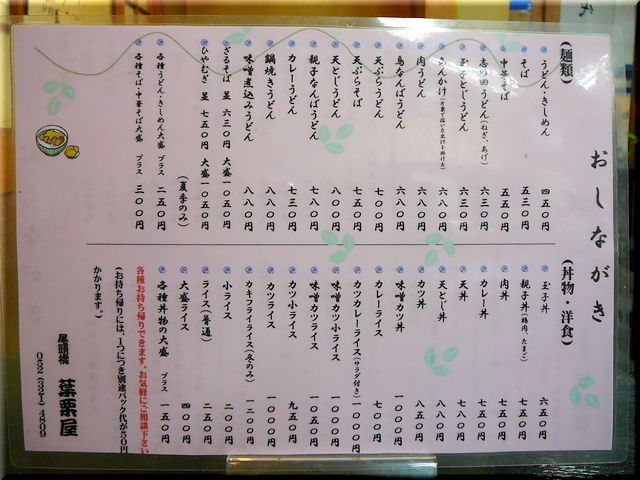 おしながき
(麺類)
うどん・きしめん 四五〇円
そば 五三〇円
中華そば 五五〇円
志の田うどん(ねぎ、あげ) 六三〇円
玉子とじうどん 六三〇円
あんかけ 六八〇円
肉うどん 六八〇円
鳥なんばうどん 六八〇円
天ぷらうどん 七〇〇円
天ぷらそば 七五〇円
天とじうどん 八〇〇円
親子なんばうどん 七八〇円
カレーうどん 七三〇円
鍋焼きうどん 八八〇円
味噌煮込みうどん 八八〇円
ざるそば 並 六三〇円 大盛一〇五〇円
ひやむぎ 並 七五〇円 大盛一〇五〇円
(夏季のみ)
各種うどん・きしめん大盛 プラス 二五〇円
各種そば・中華そば大盛 プラス 三〇〇円
(丼物・洋食)
玉子丼 六五〇円
親子丼(鶏肉、たまご) 七五〇円
肉丼 七五〇円
カレー丼 七五〇円
天丼 七八〇円
天とじ丼 八八〇円
カツ丼 八五〇円
味噌カツ丼 一〇〇〇円
カレーライス 七〇〇円
カツカレーライス(サラダ付き) 一〇〇〇円
味噌カツ小ライス 一〇〇〇円
味噌カツライス 一〇五〇円
カツ小ライス 九五〇円
カツライス 一〇〇〇円
カキフライライス(冬のみ) 一二〇〇円
小ライス 二〇〇円
ライス(普通) 二五〇円
大盛ライス 四〇〇円
各種丼物の大盛 プラス 一五〇円
各種お持ち帰りできます。お気軽にご相談下さい
(お持ち帰りには、1つにつき別途パック代が50円
かかります。)
尾頭橋 葉栗屋
052(321)4809